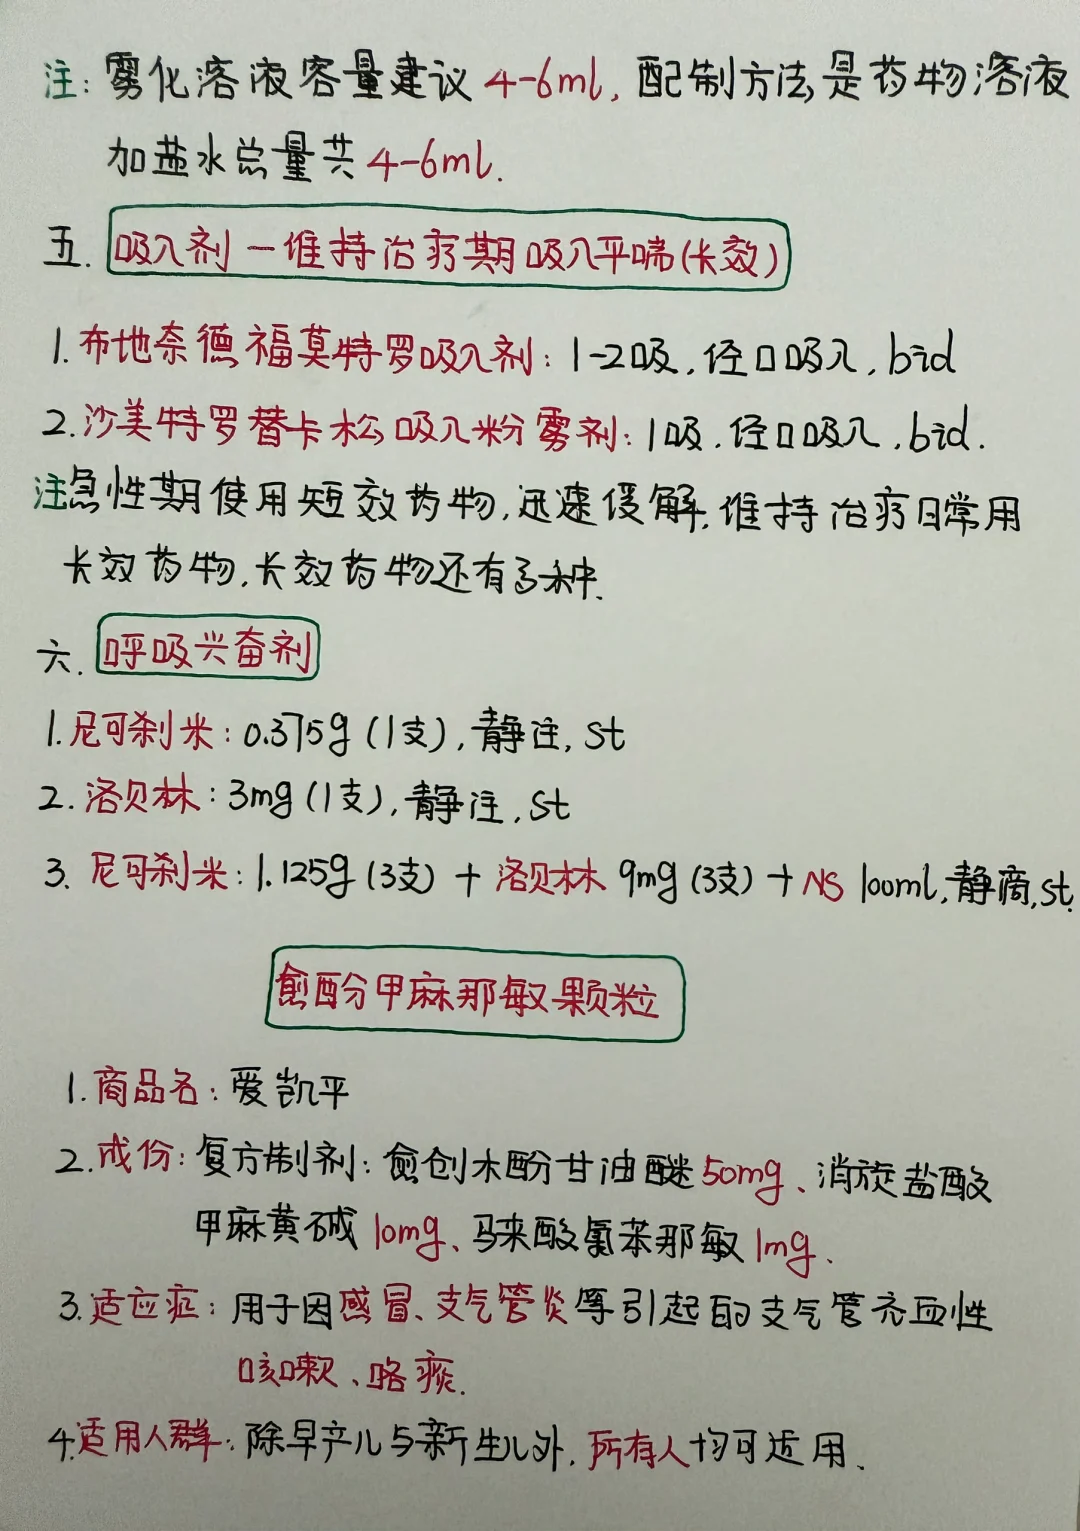 注: 雾化溶液容量建议4-6ml, 配制方法是药物溶液
加盐水总量共4-6ml.
五. 吸入剂—维持治疗期吸入平喘(长效)
1. 布地奈德福莫特罗吸入剂: 1-2吸, 经口吸入, bid
2. 沙美特罗替卡松吸入粉雾剂: 1吸. 经口吸入, bid.
注急性期使用短效药物, 迅速缓解, 维持治疗日常用
长效药物, 长效药物还有多种.
六. 呼吸兴奋剂
1. 尼可刹米: 0.375g (1支), 静注, st
2. 洛贝林: 3mg (1支), 静注, st
3. 尼可刹米: 1.125g (3支) + 洛贝林 9mg (3支) + NS 100ml, 静滴, st.
愈酚甲麻那敏颗粒
1. 商品名: 爱凯平
2. 成份: 复方制剂: 愈创木酚甘油醚50mg、消旋盐酸
甲麻黄碱10mg、马来酸氯苯那敏1mg.
3. 适应症: 用于因感冒、支气管炎等引起的支气管充血性
咳嗽、咯痰.
4. 适用人群: 除早产儿与新生儿外, 所有人均可适用.